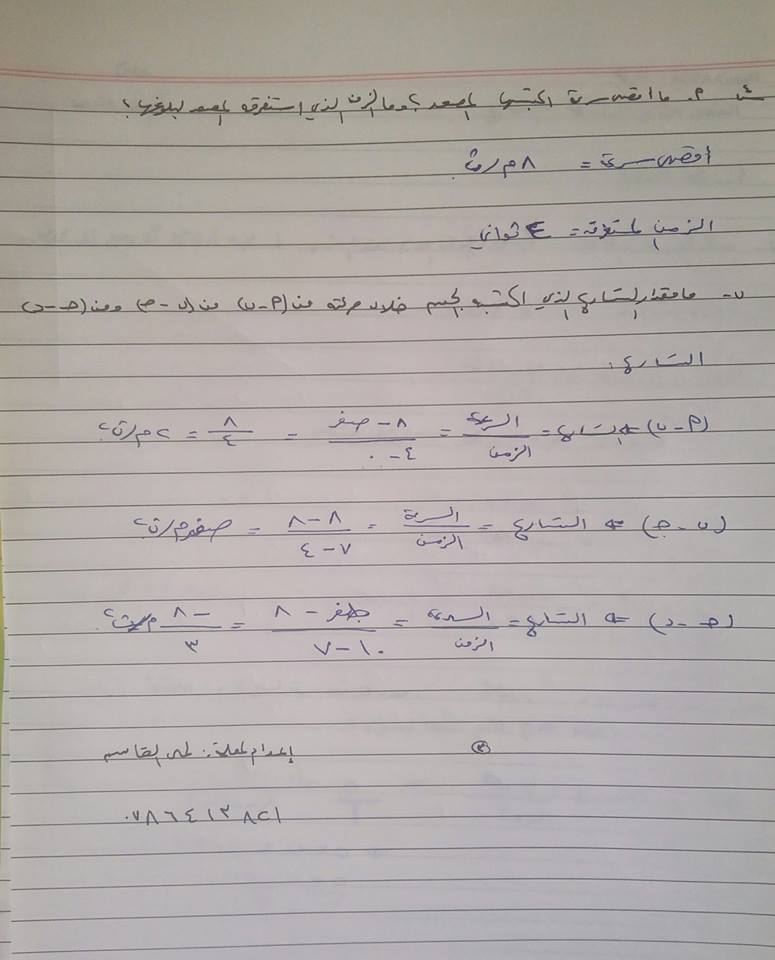 أ. ما اقصى سرعة اكتسبها المصعد؟ وما الزمن الذي استغرقه المصعد لبلوغها؟
اقصى سرعة = ٨ م/ث
الزمن المستغرقة = ٤ ثواني
ب- ما مقدار التسارع الذي اكتسبه الجسم خلال حركته من (أ-ب) من (ب-جـ) ومن (جـ-د)
التسارع:
(أ-ب) ⇐ التسارع = السرعة / الزمن = ٨ - صفر / ٤ - ٠ = ٨ / ٤ = ٢ م/ث٢
(ب-جـ) ⇐ التسارع = السرعة / الزمن = ٨ - ٨ / ٧ - ٤ = صفر م/ث٢
(جـ-د) ⇐ التسارع = السرعة / الزمن = صفر - ٨ / ١٠ - ٧ = -٨ / ٣ م/ث٢
٣ إعداد المعلمة: لمى القاسم
٠٧٨٦٤١٣٨٢١